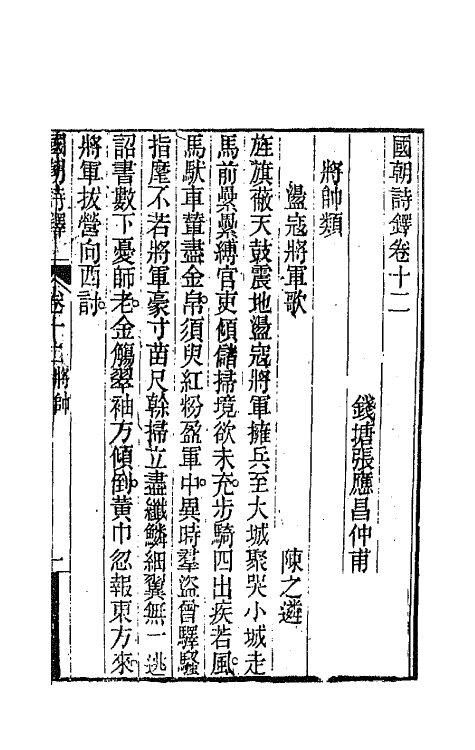 國朝詩鐸卷十二
錢塘張應昌仲甫
將帥類
盪寇將軍歌 陳之遴
旌旗蔽天鼓震地盪寇將軍擁兵至大城聚哭小城走
馬前纍纍縛官吏傾儲掃境欲未充步騎四出疾若風
馬馱車輦盡金帛須臾紅粉盈軍中異時羣盜曾驛騷
指麾不若將軍豪寸苗尺榦掃立盡纖鱗細翼無一逃
詔書數下憂師老金觴翠袖方傾倒黃巾忽報東方來
將軍拔營向西討
國朝詩鐸 卷十二 將帥 一